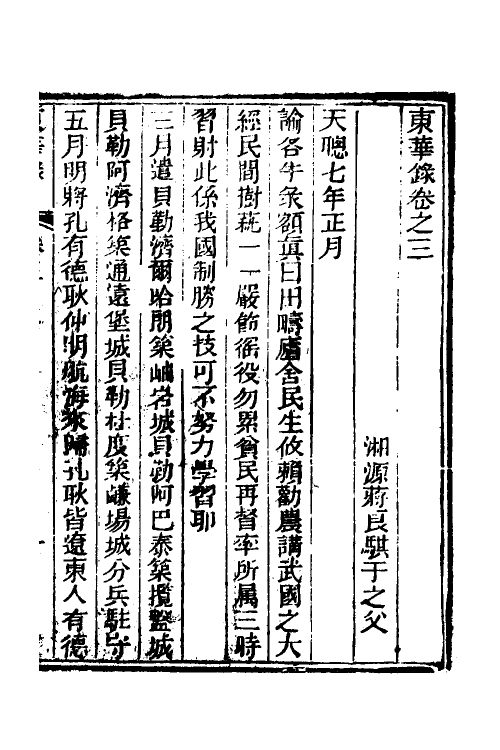 東華錄卷之三
湘源蔣良騏千之父
天聰七年正月
諭各牛彔額眞曰田疇廬舍民生攸賴勸農講武國之大
經民間樹藝一一嚴飭徭役勿累貧民再督率所属三時
習射此係我國制勝之技可不努力學習耶
三月遣貝勒濟爾哈朗築岫岩城貝勒阿巴泰築攬盤城
貝勒阿濟格築通遠堡城貝勒杜度築鹻場城分兵駐守
五月明將孔有德耿仲明航海來歸孔耿皆遼東人有德